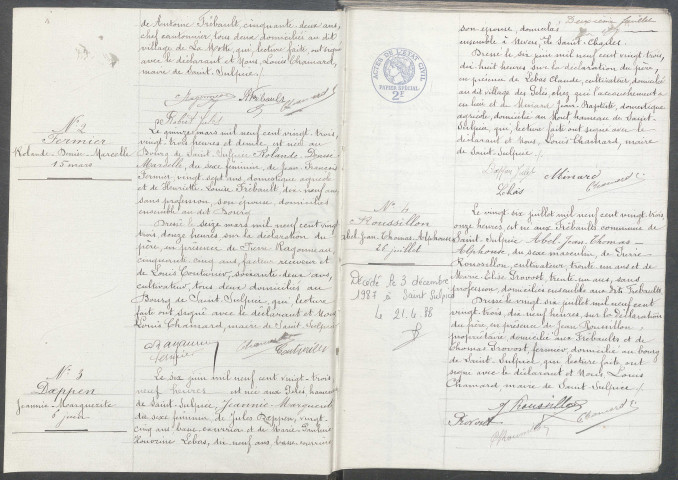 de Antoine Trébault, cinquante deux ans,
chef cantonnier, tous deux domiciliés au dit
village de La Motte qui, lecture faite, ont signé
avec le déclarant et Nous Louis Chamard,
maire de Saint-Sulpice./.
Trébault
Chamard
N° 2
Fermier
Rolande Denise Marcelle
15 mars
Le quinze mars mil neuf cent vingt trois,
vingt trois heures et demie, est née au
Bourg de Saint-Sulpice Rolande Denise
Marcelle, du sexe féminin, de Jean François
Fermier, vingt sept ans, domestique agricole
et de Henriette Louise Trébault, dix neuf ans
sans profession, son épouse, domiciliés
ensemble au dit Bourg.
Dressé le seize mars mil neuf cent vingt
trois, douze heures, sur la déclaration du
père, en présence de Pierre Ragonneau
cinquante cinq ans, facteur receveur et
de Louis Couturier, soixante deux ans,
cultivateur, tous deux domiciliés au
Bourg de Saint-Sulpice, qui, lecture
faite ont signé avec le déclarant et Nous
Louis Chamard, maire de Saint-Sulpice
Fermier
Chamard
N° 3
Dappen
Jeannie Marguerite
6 juin
Le six juin mil neuf cent vingt-trois
neuf heures, est née aux Jolis hameau
de Saint-Sulpice, Jeannie Marguerite
du sexe féminin de Jules Dappen, vingt-
cinq ans, carrier et de Marie Pauline
Lebas, dix neuf ans,
Deuxième feuillet
son épouse, domiciliés
ensemble à Nevers, Saint-Charles
Dressé le six juin mil neuf cent vingt trois,
dix huit heures sur la déclaration du père,
en présence de Lebas Claude, cultivateur, domicilié
au dit village des Jolis chez qui l'accouchement a
eu lieu et de Minard Jean-Baptiste, domestique
agricole domicilié au hameau de Saint-
Sulpice, qui, lecture faite, ont signé avec le
déclarant et Nous, Louis Chamard, maire
de Saint-Sulpice./.
ACTES DE L'ETAT CIVIL
PAPIER SPECIAL
2F
Dappen Jules
Minard
Lebas
Chamard
N° 4
Roussillon
Abel Jean Thomas Alphonse
26 juillet
Décédé le 3 décembre
1987 à Saint Sulpice
Le 21.4.88
Le vingt six juillet mil neuf cent vingt trois,
onze heures, est né aux Trébaults commune de
Saint-Sulpice Abel Jean Thomas
Alphonse, du sexe masculin, de Pierre
Roussillon, cultivateur, trente un ans et de
Marie Elise Provost, trente un ans, sans
profession, domiciliés ensemble aux dits Trébaults.
Dressé le vingt six juillet mil neuf cent vingt
trois, dix neuf heures, sur la déclaration
du père, en présence de Jean Roussillon,
propriétaire domicilié aux Trébaults et de
Thomas Provost, fermier, domicilié au bourg
de Saint-Sulpice, qui lecture faite ont
signé avec le déclarant et Nous, Louis
Chamard, maire de Saint-Sulpice./.
Roussillon
Chamard
Provost